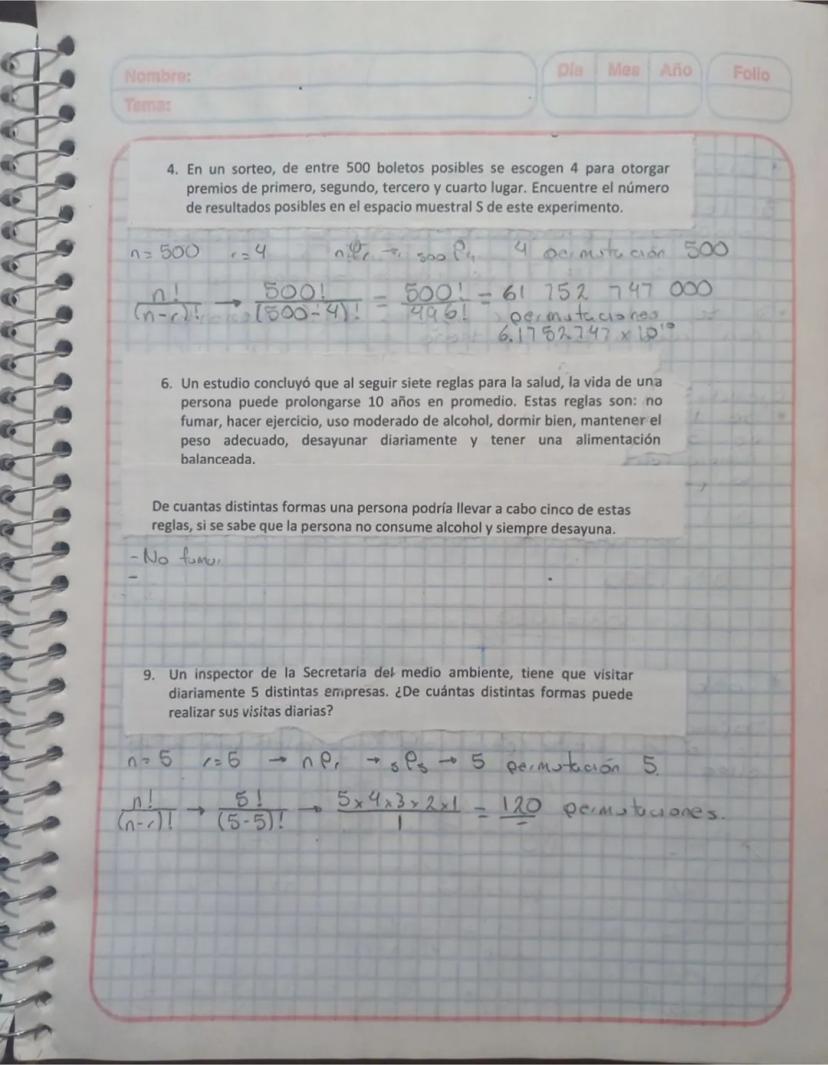 Nombre:
Tema:
Día Mes Año
Folio
4. En un sorteo, de entre 500 boletos posibles se escogen 4 para otorgar
premios de primero, segundo, tercero y cuarto lugar. Encuentre el número
de resultados posibles en el espacio muestral S de este experimento.
n = 500 r = 4 nPr → 500P4 4 permutación 500
n!/(n-r)! → 500!/(500-4)! = 500!/496! = 61 752 747 000
permutaciones
6.1752747 x 10¹⁰
6. Un estudio concluyó que al seguir siete reglas para la salud, la vida de una
persona puede prolongarse 10 años en promedio. Estas reglas son: no
fumar, hacer ejercicio, uso moderado de alcohol, dormir bien, mantener el
peso adecuado, desayunar diariamente y tener una alimentación
balanceada.
De cuantas distintas formas una persona podría llevar a cabo cinco de estas
reglas, si se sabe que la persona no consume alcohol y siempre desayuna.
- No fumar
-
9. Un inspector de la Secretaria del medio ambiente, tiene que visitar
diariamente 5 distintas empresas. ¿De cuántas distintas formas puede
realizar sus visitas diarias?
n = 5 r = 5 → nPr → 5P5 → 5 permutación 5.
n!/(n-r)! → 5!/(5-5)! → 5x4x3x2x1/1 = 120 permutaciones.